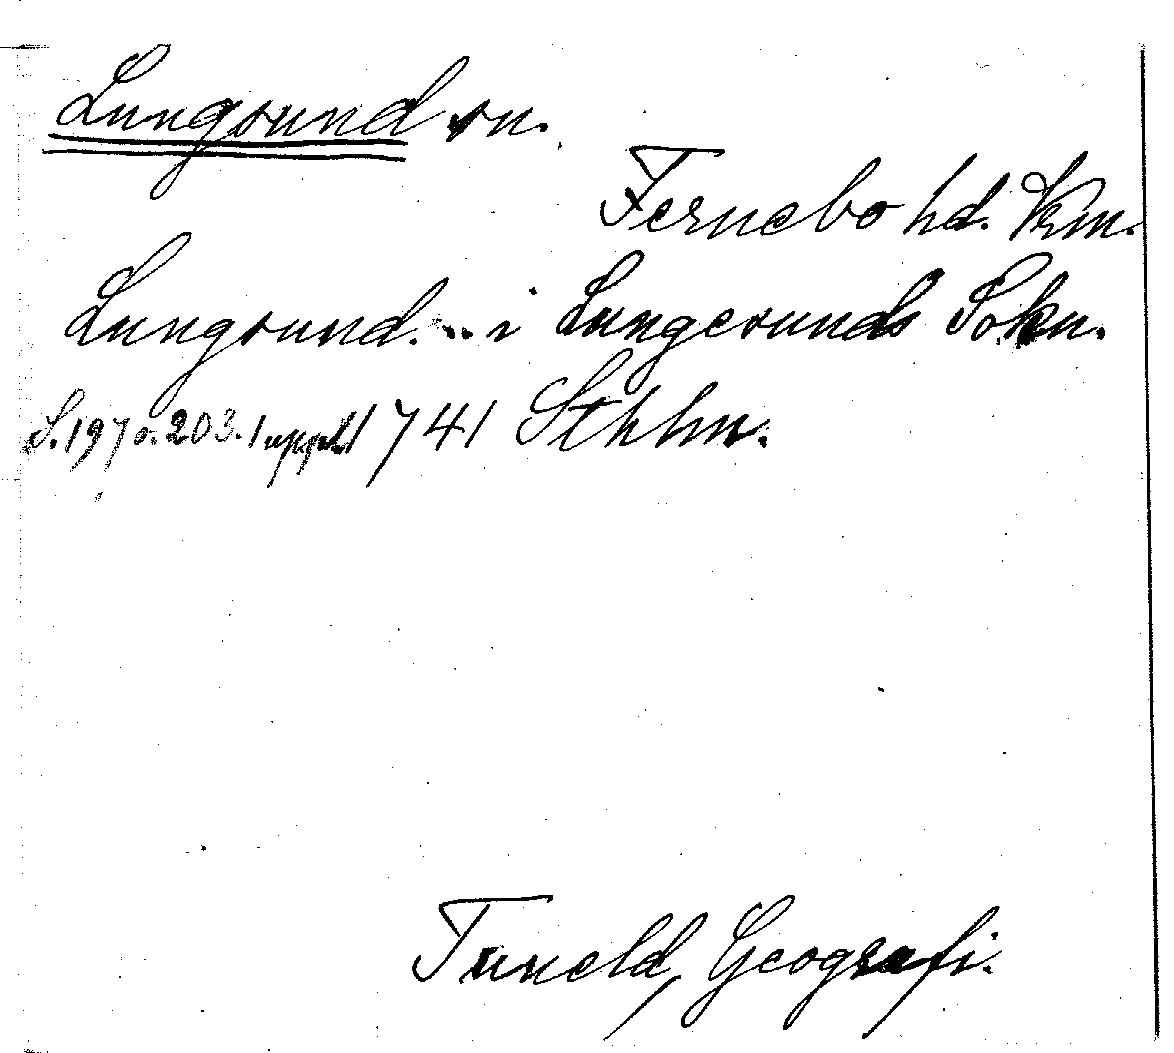 Lungsund sn.
Fernebo hd. Vrm.
Lungsund... i Lungesunds Sokn.
S. 197 o. 203. 1 uppl. 1741 Sthlm.
Tuneld, Geografi.